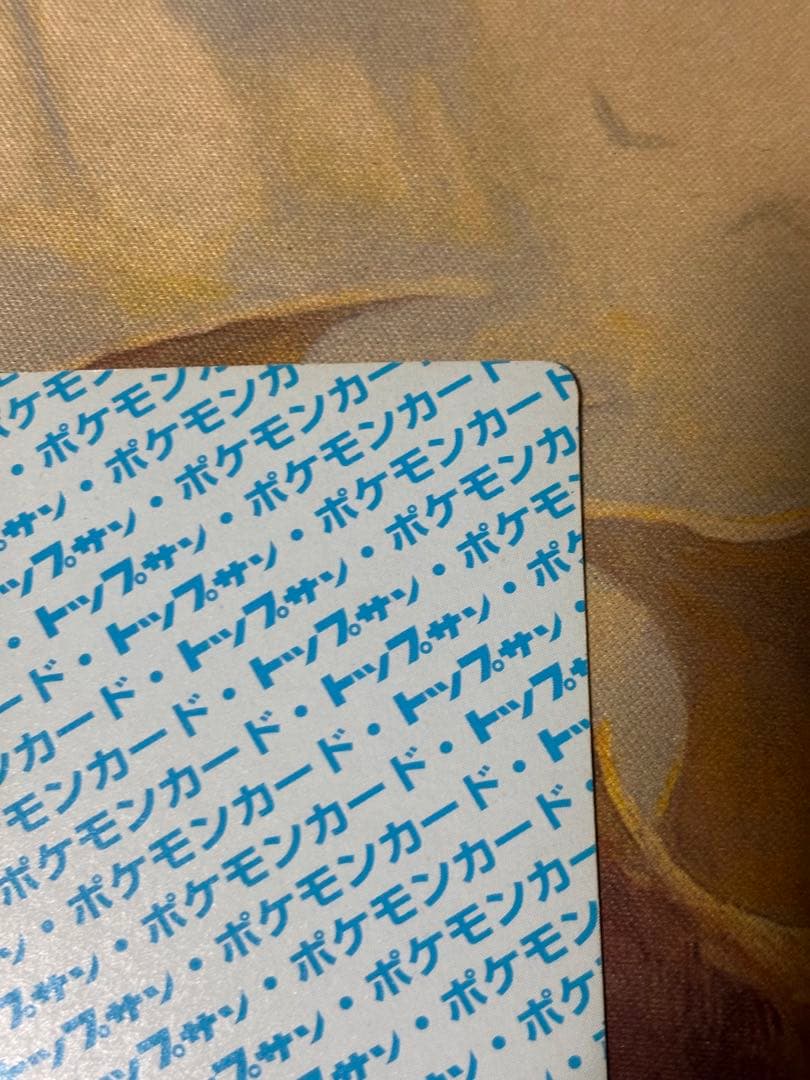 ケモン
・ポケモン
サン・ポケモンカ
ップサン・ポケモンカー
・トップサン・ポケモンカード
ード・トップサン・ポケモンカード
カード・トップサン・ポケモンカ
ンカード・トップサン・ポケモ
モンカード・トップサン・ポケ
ポケモンカード・トップサン・
・ポケモンカード・トップサ
ン・ポケモンカード・トッ
プサン・ポケモンカード・
ップサン・ポケモンカー
トップサン・ポケモン
トップサン・ポケ
サン・ポ